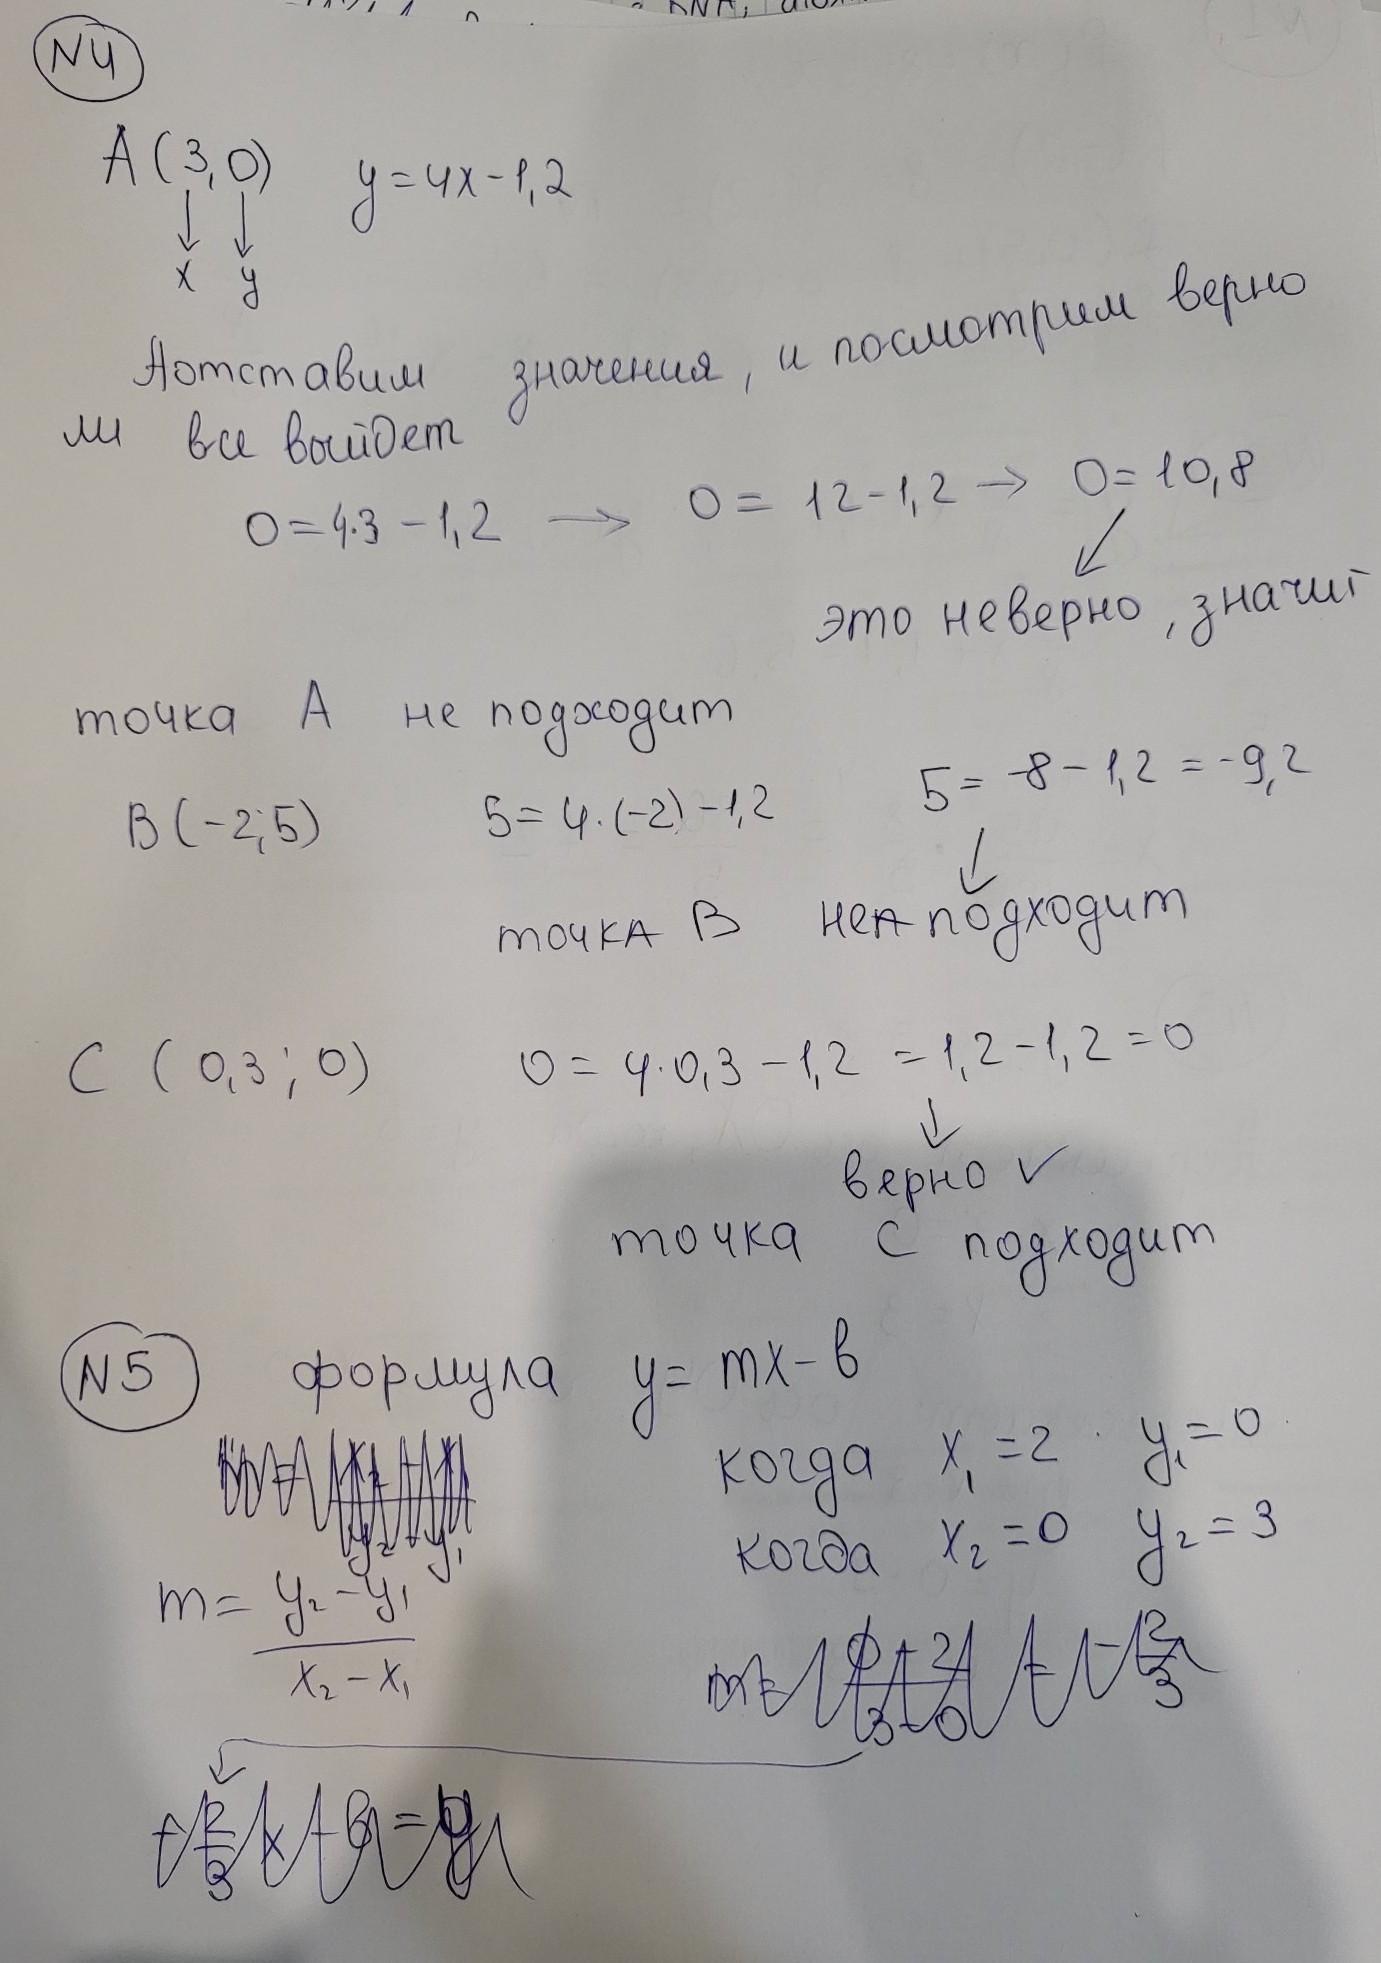 N4
A(3,0) y=4x-1,2
x y
Потставим значения, и посмотрим верно
ли все выйдет
0=4·3-1,2 → 0=12-1,2 → 0=10,8
это неверно, значит
точка A не подходит
B(-2;5) 5=4·(-2)-1,2 5=-8-1,2=-9,2
точка B не подходит
C (0,3; 0) 0=4·0,3-1,2 =1,2-1,2=0
верно ✓
точка C подходит
N5 формула y=mx-b
когда x₁=2 y₁=0
когда x₂=0 y₂=3
m= y₂-y₁
x₂-x₁